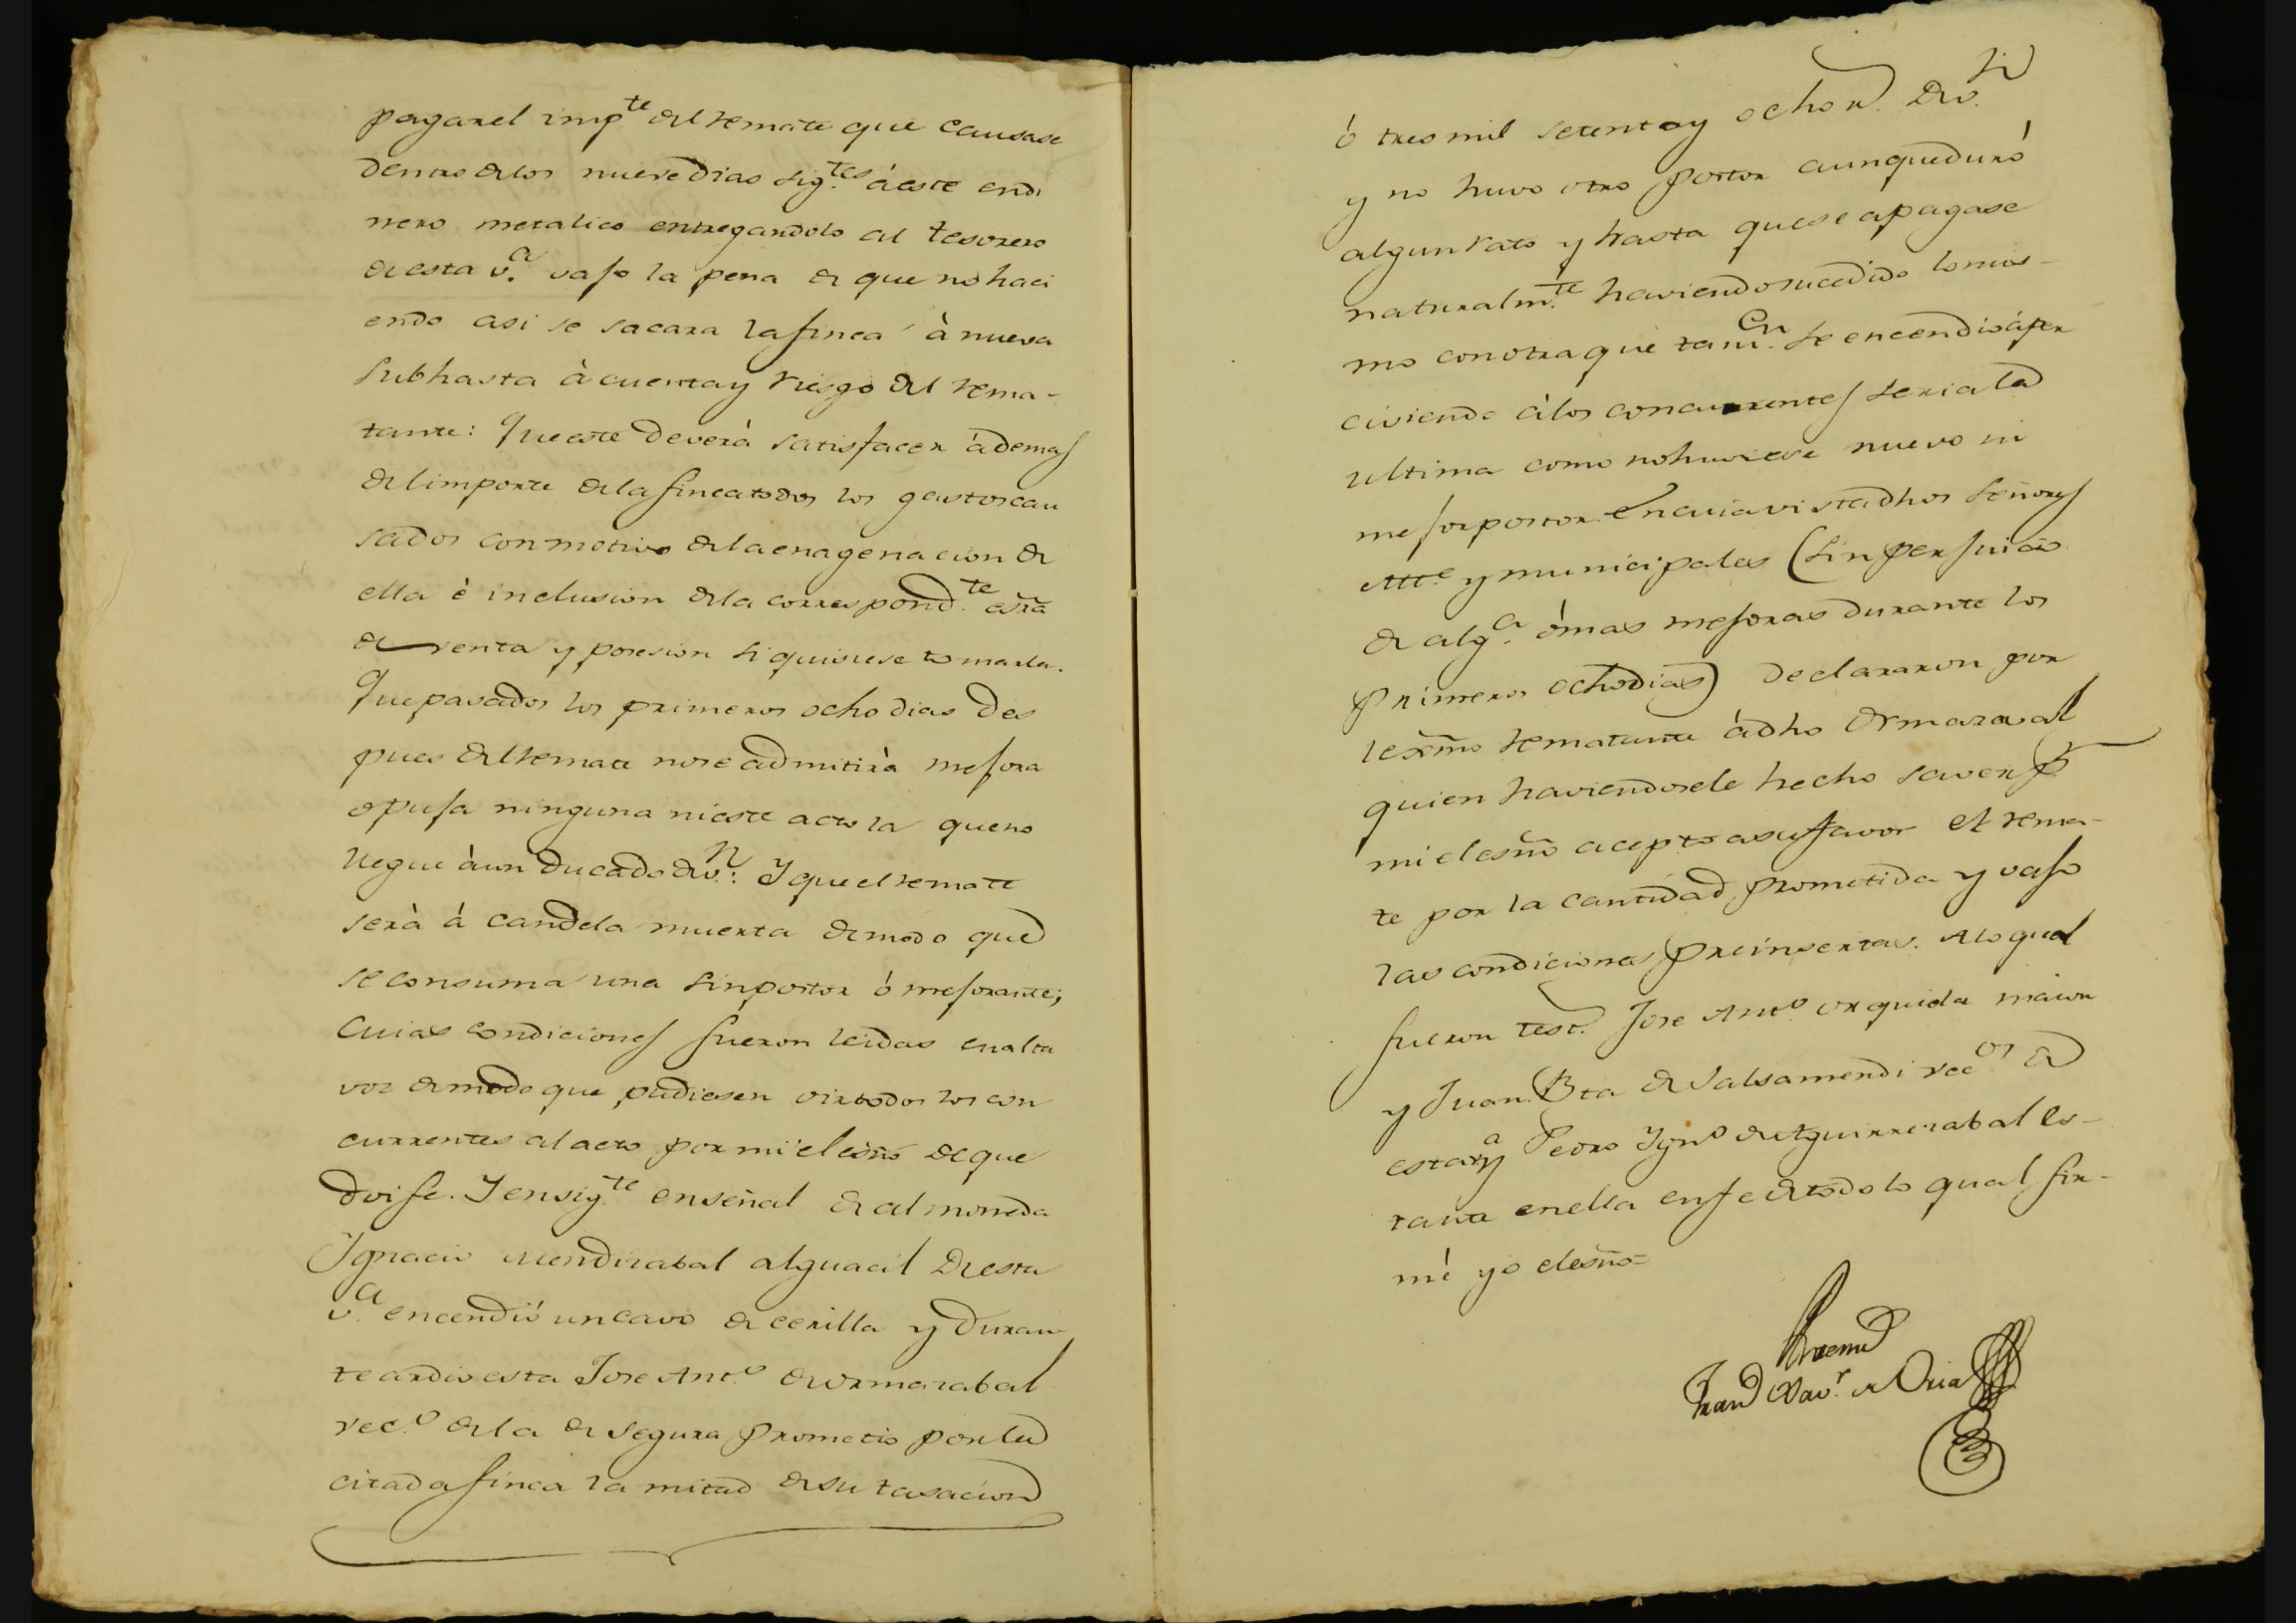 pagar el imp.te del remate que causase
dentro de los nueve dias sig.tes à este en di
nero metalico entregandolo al tesorero
de esta v.a vajo la pena de que no haci
endo asi se sacara la finca à nueva
Subhasta à cuenta y riesgo del rema-
tante: Que este deverà satisfacer àdemas
del importe de la finca todos los gastos cau
sados con motivo de la enagenacion de
ella è inclusion de la correspond.te esrã
de venta y posesion si quisiese tomarla.
Que pasados los primeros ocho dias des
pues del remate no se admitirà mejora
o puja ninguna ni este acto la que no
llegue à un Ducado de v.n: Y que el remate
serà à candela muerta de modo que
se consuma una sin postor ó mejorante;
Cuias condiciones fueron leidas en alta
voz de modo que pudiesen oir todos los con
currentes al acto por mi el esñō de que
doi fe. Y en sig.te en señal de almoneda
Ignacio Mendizabal alguacil de esta
v.a encendió un cavo de cerilla y duran-
te ardio esta Jose Ant.o de Ormazabal
vec.o de la de Segura prometio por la
citada finca la mitad de su tasacion
ó tres mil setenta y ocho r.s de v.n
y no huvo otro postor aunque duró
algun rato y hasta que se apagase
naturalm.te haviendo sucedido lo mis-
mo con otra que tam.en se encendió àper
civiendo à los concurrentes seria la
ultima como no huviese nuevo ni
mejor postor. En cuia vista dhos Señores
Alc.e y municipales (sin perjuicio
de alg.a ó mas mejoras durante los
Primeros ocho dias) declararon por
lexm̃o rematante à dho Ormazaval
quien haviendosele hecho saver p.r
mi el esñō acepto a su favor el rema-
te por la cantidad prometida y vajo
las condiciones preinsertas. A lo qual
fueron test.s Jose Ant.o Urquida maior
y Juan Bta de Salsamendi vec.os de
esta y Pedro Ygn.o de Aguirrezabal es-
tante en ella en fe de todo lo qual fir-
mé yo el esñō=
Antemi
Fran.co Xav.r de Oria